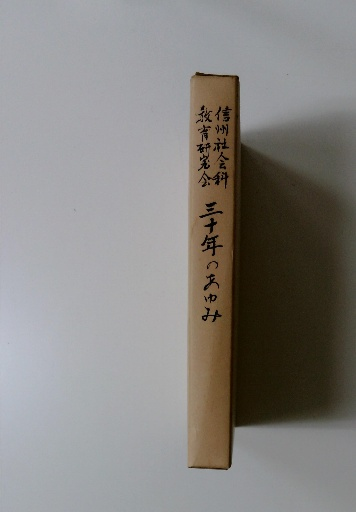 信州社会科
教育研究会
三十年のあゆみ